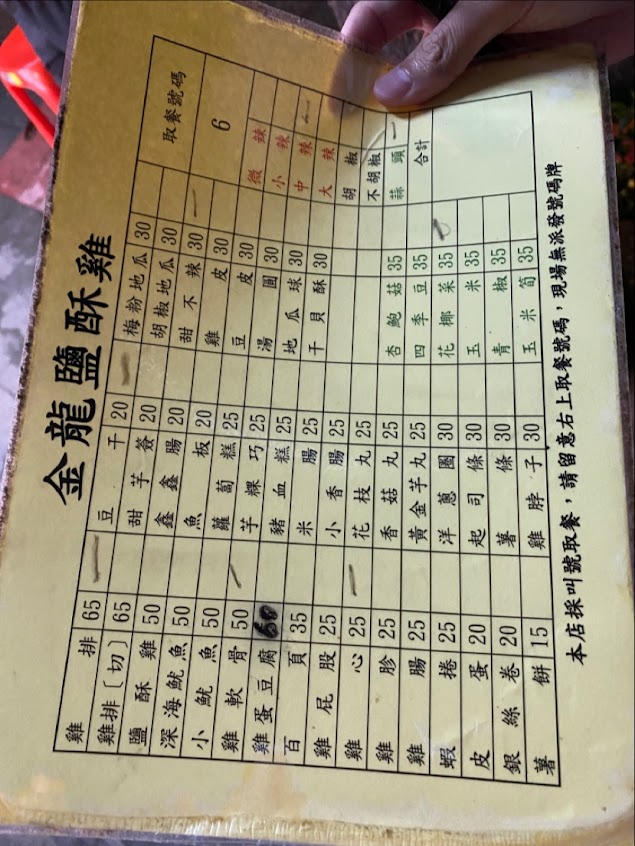 金龍鹽酥雞
雞排 65 豆干 20 梅粉地瓜 30 取餐號碼
雞排〔切〕 65 甜芋簽 20 胡椒地瓜 30
鹽酥雞 50 鑫鑫腸 20 甜不辣 30 6
深海魷魚 50 魚板 20 雞皮 30
小魷魚 50 蘿蔔糕 25 豆皮 30 微辣
雞軟骨 50 芋粿巧 25 湯圓 30 小辣
雞蛋豆腐 60 豬血糕 25 地瓜球 30 中辣
百頁 35 米腸 25 干貝酥 30 大辣
雞屁股 25 小香腸 25 胡椒
雞心 25 花枝丸 25 不胡椒
雞胗 25 香菇丸 25 杏鮑菇 35 蒜頭
雞腸 25 黃金芋丸 25 四季豆 35 合計
蝦捲 25 洋蔥圈 30 花椰菜 35
皮蛋 20 起司條 30 玉米 35
銀絲卷 20 薯條 30 青椒 35
薯餅 15 雞脖子 30 玉米筍 35
本店採叫號取餐，請留意右上取餐號碼，現場無派發號碼牌